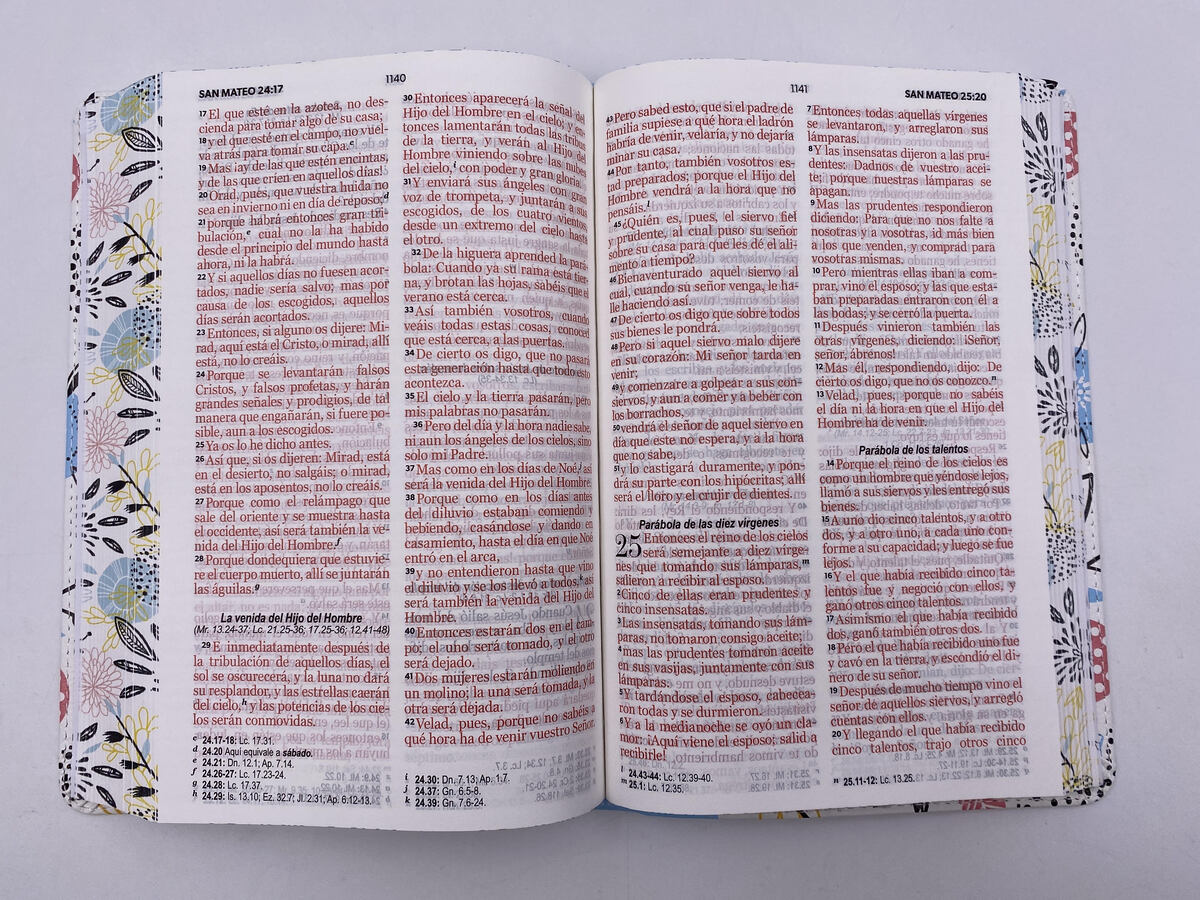 SAN MATEO 24:17
1140
17 El que esté en la azotea, no des-
cienda para tomar algo de su casa;
18 y el que esté en el campo, no vuel-
va atrás para tomar su capa.c
19 Mas ¡ay de las que estén encintas,
y de las que críen en aquellos días!
20 Orad, pues, que vuestra huida no
sea en invierno ni en día de reposo;d
21 porque habrá entonces gran tri-
bulación,e cual no la ha habido
desde el principio del mundo hasta
ahora, ni la habrá.
22 Y si aquellos días no fuesen acor-
tados, nadie sería salvo; mas por
causa de los escogidos, aquellos
días serán acortados.
23 Entonces, si alguno os dijere: Mi-
rad, aquí está el Cristo, o mirad, allí
está, no lo creáis.
24 Porque se levantarán falsos
Cristos, y falsos profetas, y harán
grandes señales y prodigios, de tal
manera que engañarán, si fuere po-
sible, aun a los escogidos.
25 Ya os lo he dicho antes.
26 Así que, si os dijeren: Mirad, está
en el desierto, no salgáis; o mirad,
está en los aposentos, no lo creáis.
27 Porque como el relámpago que
sale del oriente y se muestra hasta
el occidente, así será también la ve-
nida del Hijo del Hombre.f
28 Porque dondequiera que estuvie-
re el cuerpo muerto, allí se juntarán
las águilas.g
La venida del Hijo del Hombre
(Mr. 13.24-37; Lc. 21.25-36; 17.25-36; 12.41-48)
29 E inmediatamente después de
la tribulación de aquellos días, el
sol se oscurecerá, y la luna no dará
su resplandor, y las estrellas caerán
del cielo,h y las potencias de los cie-
los serán conmovidas.
c 24.17-18: Lc. 17.31.
d 24.20 Aquí equivale a sábado.
e 24.21: Dn. 12.1; Ap. 7.14.
f 24.26-27: Lc. 17.23-24.
g 24.28: Lc. 17.37.
h 24.29: Is. 13.10; Ez. 32.7; Jl. 2.31; Ap. 6.12-13.
30 Entonces aparecerá la señal del
Hijo del Hombre en el cielo; y en-
tonces lamentarán todas las tribus
de la tierra, y verán al Hijo del
Hombre viniendo sobre las nubes
del cielo,i con poder y gran gloria.
31 Y enviará sus ángeles con gran
voz de trompeta, y juntarán a sus
escogidos, de los cuatro vientos,
desde un extremo del cielo hasta
el otro.
32 De la higuera aprended la pará-
bola: Cuando ya su rama está tier-
na, y brotan las hojas, sabéis que el
verano está cerca.
33 Así también vosotros, cuando
veáis todas estas cosas, conoced
que está cerca, a las puertas.
34 De cierto os digo, que no pasará
esta generación hasta que todo esto
acontezca.
35 El cielo y la tierra pasarán, pero
mis palabras no pasarán.
36 Pero del día y la hora nadie sabe,
ni aun los ángeles de los cielos, sino
solo mi Padre.
37 Mas como en los días de Noé,j así
será la venida del Hijo del Hombre.
38 Porque como en los días antes
del diluvio estaban comiendo y
bebiendo, casándose y dando en
casamiento, hasta el día en que Noé
entró en el arca,
39 y no entendieron hasta que vino
el diluvio y se los llevó a todos,k así
será también la venida del Hijo del
Hombre.
40 Entonces estarán dos en el cam-
po; el uno será tomado, y el otro
será dejado.
41 Dos mujeres estarán moliendo en
un molino; la una será tomada, y la
otra será dejada.
42 Velad, pues, porque no sabéis a
qué hora ha de venir vuestro Señor.
i 24.30: Dn. 7.13; Ap. 1.7.
j 24.37: Gn. 6.5-8.
k 24.39: Gn. 7.6-24.
1141
SAN MATEO 25:20
43 Pero sabed esto, que si el padre de
familia supiese a qué hora el ladrón
habría de venir, velaría, y no dejaría
minar su casa.
44 Por tanto, también vosotros es-
tad preparados; porque el Hijo del
Hombre vendrá a la hora que no
pensáis.l
45 ¿Quién es, pues, el siervo fiel
y prudente, al cual puso su señor
sobre su casa para que les dé el ali-
mento a tiempo?
46 Bienaventurado aquel siervo al
cual, cuando su señor venga, le ha-
lle haciendo así.
47 De cierto os digo que sobre todos
sus bienes le pondrá.
48 Pero si aquel siervo malo dijere
en su corazón: Mi señor tarda en
venir;
49 y comenzare a golpear a sus con-
siervos, y aun a comer y a beber con
los borrachos,
50 vendrá el señor de aquel siervo en
día que este no espera, y a la hora
que no sabe,
51 y lo castigará duramente, y pon-
drá su parte con los hipócritas; allí
será el lloro y el crujir de dientes.
Parábola de las diez vírgenes
25 Entonces el reino de los cielos
será semejante a diez vírge-
nes que tomando sus lámparas,m
salieron a recibir al esposo.
2 Cinco de ellas eran prudentes y
cinco insensatas.
3 Las insensatas, tomando sus lám-
paras, no tomaron consigo aceite;
4 mas las prudentes tomaron aceite
en sus vasijas, juntamente con sus
lámparas.
5 Y tardándose el esposo, cabecea-
ron todas y se durmieron.
6 Y a la medianoche se oyó un cla-
mor: ¡Aquí viene el esposo; salid a
recibirle!
l 24.43-44: Lc. 12.39-40.
m 25.1: Lc. 12.35.
7 Entonces todas aquellas vírgenes
se levantaron, y arreglaron sus
lámparas.
8 Y las insensatas dijeron a las pru-
dentes: Dadnos de vuestro acei-
te; porque nuestras lámparas se
apagan.
9 Mas las prudentes respondieron
diciendo: Para que no nos falte a
nosotras y a vosotras, id más bien
a los que venden, y comprad para
vosotras mismas.
10 Pero mientras ellas iban a com-
prar, vino el esposo; y las que esta-
ban preparadas entraron con él a
las bodas; y se cerró la puerta.
11 Después vinieron también las
otras vírgenes, diciendo: ¡Señor,
señor, ábrenos!
12 Mas él, respondiendo, dijo: De
cierto os digo, que no os conozco.n
13 Velad, pues, porque no sabéis
el día ni la hora en que el Hijo del
Hombre ha de venir.
Parábola de los talentos
14 Porque el reino de los cielos es
como un hombre que yéndose lejos,
llamó a sus siervos y les entregó sus
bienes.
15 A uno dio cinco talentos, y a otro
dos, y a otro uno, a cada uno con-
forme a su capacidad; y luego se fue
lejos.
16 Y el que había recibido cinco ta-
lentos fue y negoció con ellos, y
ganó otros cinco talentos.
17 Asimismo el que había recibido
dos, ganó también otros dos.
18 Pero el que había recibido uno fue
y cavó en la tierra, y escondió el di-
nero de su señor.
19 Después de mucho tiempo vino el
señor de aquellos siervos, y arregló
cuentas con ellos.
20 Y llegando el que había recibido
cinco talentos, trajo otros cinco
n 25.11-12: Lc. 13.25.